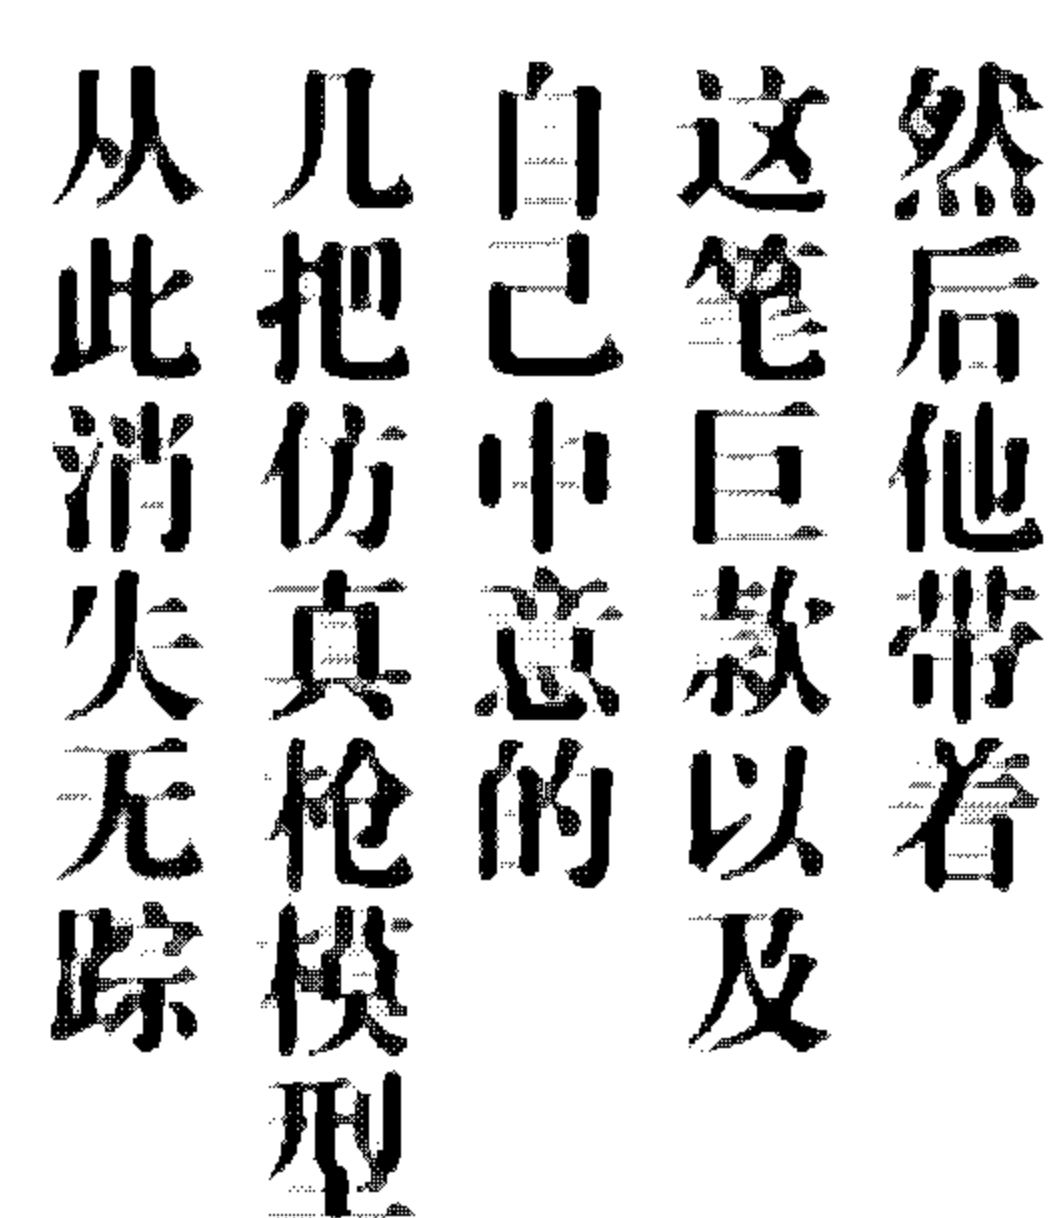 然后他带着
这笔巨款以及
自己中意的
几把仿真枪模型
从此消失无踪